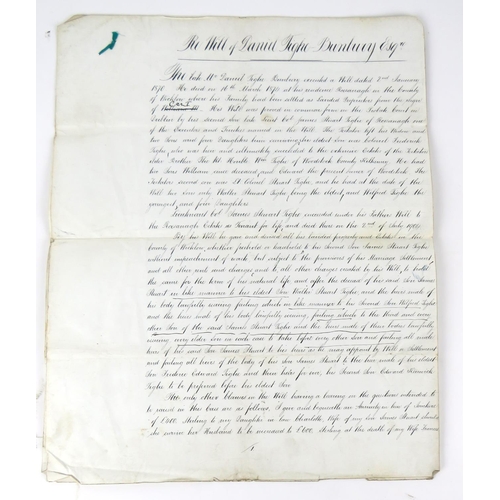 Re Will of Daniel Tighe Dunbury Esqre
The late Mr Daniel Tighe executed a Will dated 2nd January
1870. He died on 16th March 1874 at his residence Rossanagh in the County
of Wicklow where his Family had been settled as landed Proprietors from the reign
of
His Will was proved in common form in the Probate Court in
Dublin by his second son late Lieut Col James Stuart Tighe of Rossanagh one
of the Executors and Trustees named in the Will. The Testator left his Widow and
two Sons and four Daughters him surviving, his eldest son was Colonel Frederick
Tighe who was here and ultimately succeeded to the extensive Estate of the Testator's
elder Brother The Rt Honble Wm Tighe of Woodstock County Kilkenny. He had
two Sons William since deceased and Edward the present owner of Woodstock. The
Testator's second son was Lt Colonel Stuart Tighe, and he had at the date of the
Will two Sons only Walter Stuart Tighe being the eldest, and Wilfred Tighe the
youngest, and four Daughters
Lieutenant Col James Stuart Tighe succeeded under his Father's Will to
the Rossanagh Estate as Tenant for life, and died there on the 2nd of July
By his Will he gave and devised all his landed property and Estate in the
County of Wicklow, whether freehold or leasehold to his Second Son James Stuart Tighe
without impeachment of waste but subject to the provisions of his Marriage Settlement
and all other rents and charges and to all other charges created by his Will, to hold
the same for the term of his natural life, and after the decease of his said Son James
Stuart in like manner to his eldest Son Walter Stuart Tighe, and the heirs male of
his body lawfully issuing, failing which in like manner to his Second Son Wilfred Tighe
and the heirs male of his body lawfully issuing, failing which to the third and every
other Son of the said James Stuart Tighe and the heirs male of their bodies lawfully
issuing every elder son in each case to take before every other son and failing all male
heirs of his said Son James Stuart to his heirs as he may appoint by Will or Settlement
and failing all heirs of the body of his Son James Stuart to the heir male of his eldest
Son Frederic Edward Tighe and their heirs for ever, his Second Son Edward Kenrick
Tighe to be preferred before his eldest Son
The only other Clauses in the Will having a bearing on the questions intended to
be raised in this Case are as follows. I give and bequeath an Annuity in lieu of Jointure
of £400 sterling to my Daughter in law Charlotte Wife of my Son James Stuart should
she survive her Husband to be increased to £600 sterling at the death of my Wife Frances